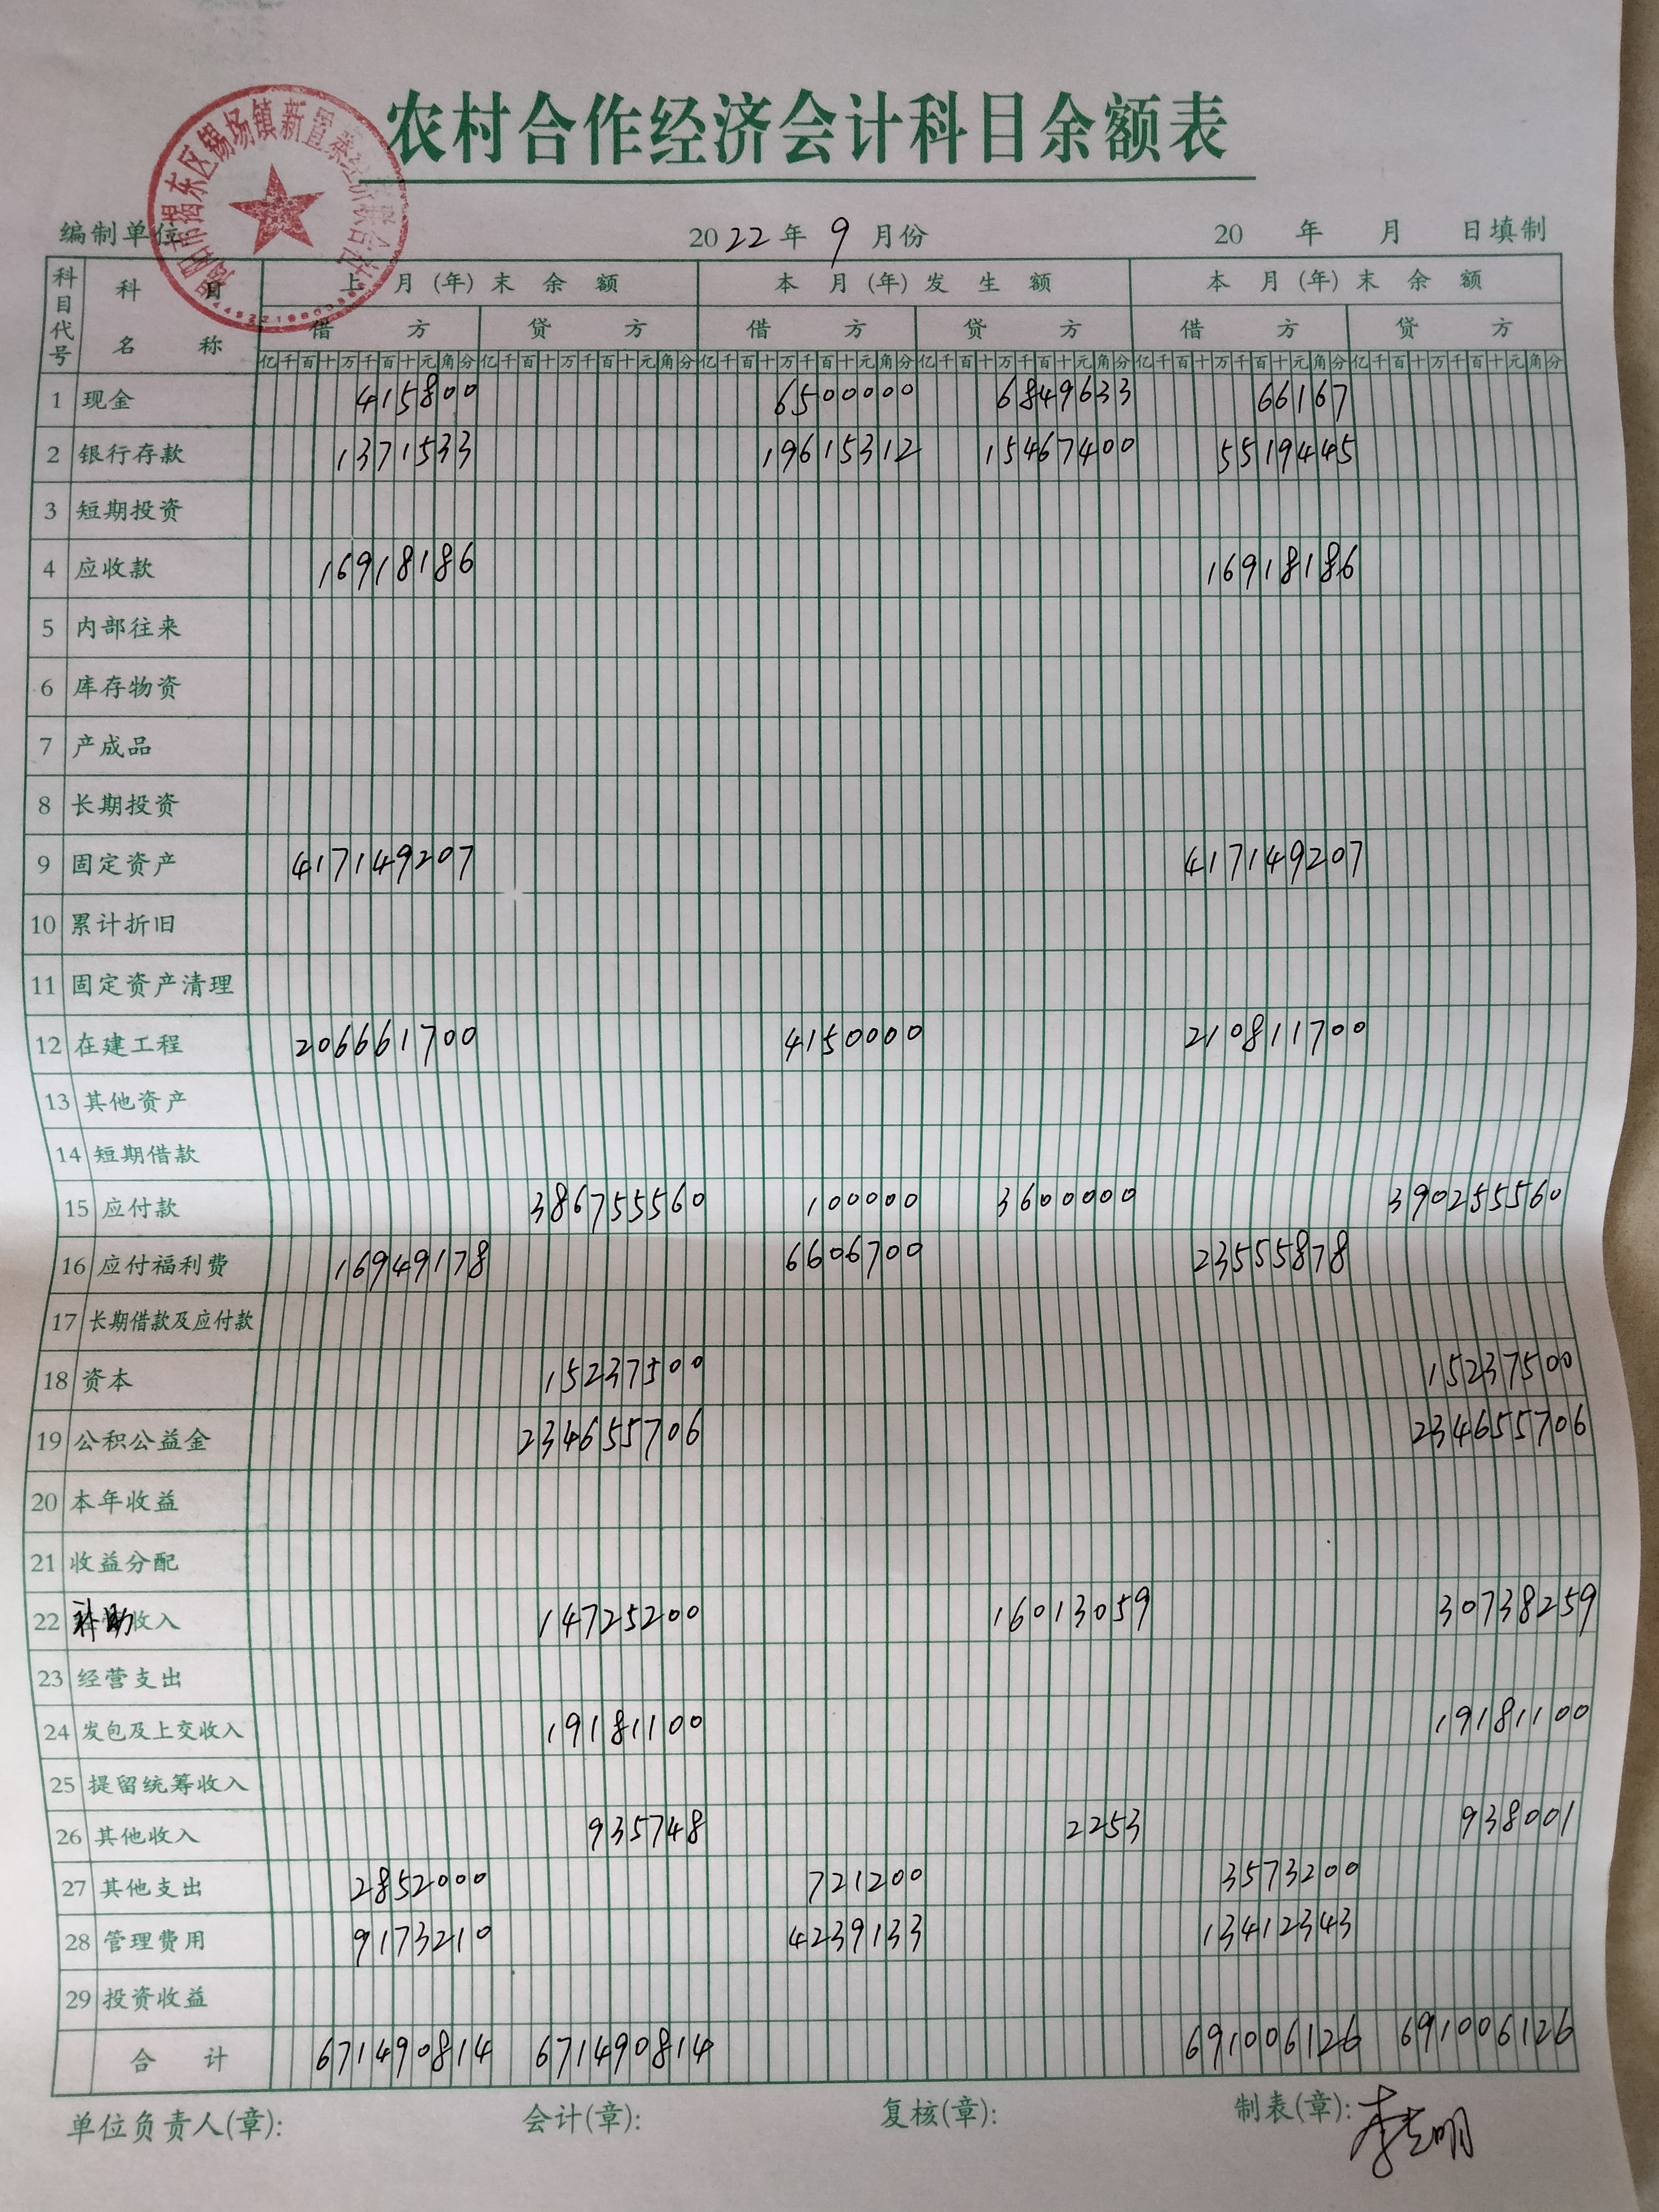 农村合作经济会计科目余额表
揭阳市揭东区锡场镇新置寨经济联合社
编制单位: 2022年9月份 20 年 月 日填制
科目代号 科目名称 上月(年)末余额 本月(年)发生额 本月(年)末余额
借方 贷方 借方 贷方 借方 贷方
亿千百十万千百十元角分 亿千百十万千百十元角分 亿千百十万千百十元角分 亿千百十万千百十元角分 亿千百十万千百十元角分 亿千百十万千百十元角分
1 现金 415800 6500000 6849633 66167
2 银行存款 1371533 19615312 15467400 5519445
3 短期投资
4 应收款 16918186 16918186
5 内部往来
6 库存物资
7 产成品
8 长期投资
9 固定资产 417149207 417149207
10 累计折旧
11 固定资产清理
12 在建工程 206661700 4150000 210811700
13 其他资产
14 短期借款
15 应付款 386755560 100000 3600000 390255560
16 应付福利费 16949178 6606700 23555878
17 长期借款及应付款
18 资本 15237500 15237500
19 公积公益金 234655706 234655706
20 本年收益
21 收益分配
22 补助收入 14725200 16013059 30738259
23 经营支出
24 发包及上交收入 19181100 19181100
25 提留统筹收入
26 其他收入 935748 2253 938001
27 其他支出 2852000 721200 3573200
28 管理费用 9173210 4239133 13412343
29 投资收益
合计 671490814 671490814 691006126 691006126
单位负责人(章): 会计(章): 复核(章): 制表(章):